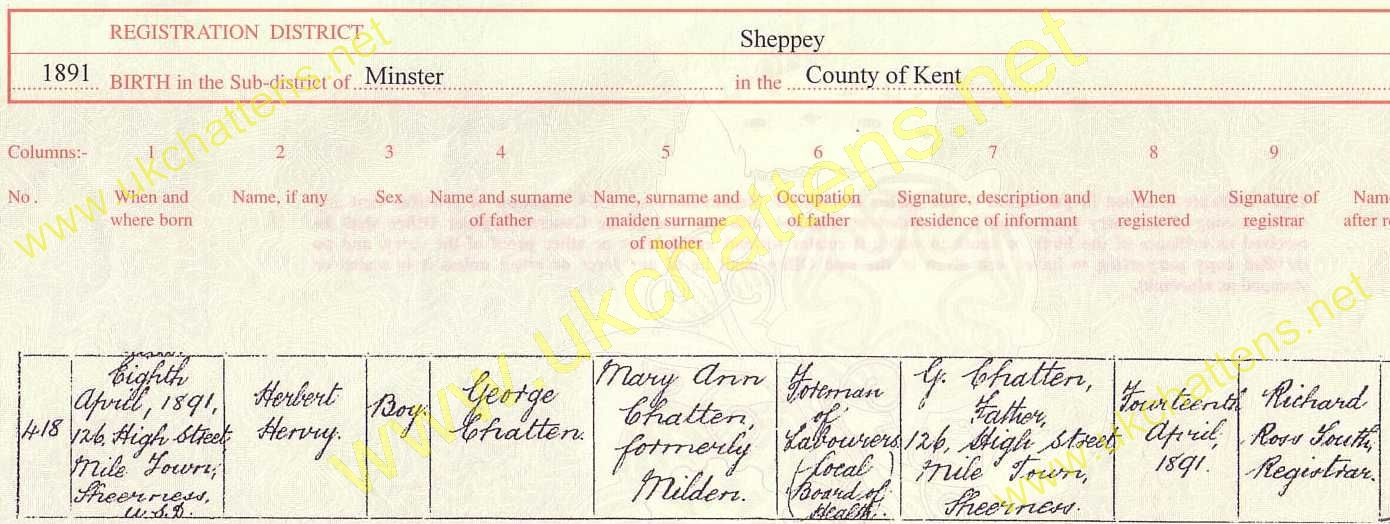 REGISTRATION DISTRICT Sheppey
1891 BIRTH in the Sub-district of Minster in the County of Kent
Columns:- 1 2 3 4 5 6 7 8 9
No. When and where born
Name, if any
Sex
Name and surname of father
Name, surname and maiden surname of mother
Occupation of father
Signature, description and residence of informant
When registered
Signature of registrar
418
Eighth
April, 1891,
126, High Street,
Mile Town,
Sheerness,
U.S.D.
Herbert
Henry.
Boy.
George
Chatten.
Mary Ann
Chatten,
formerly
Milden.
Foreman
of
Labourers
(Local
Board of
Health).
G. Chatten,
Father,
126, High Street
Mile Town,
Sheerness.
Fourteenth
April,
1891.
Richard
Ross
Registrar.
www.ukchattens.net
www.ukchattens.net
www.ukchattens.net